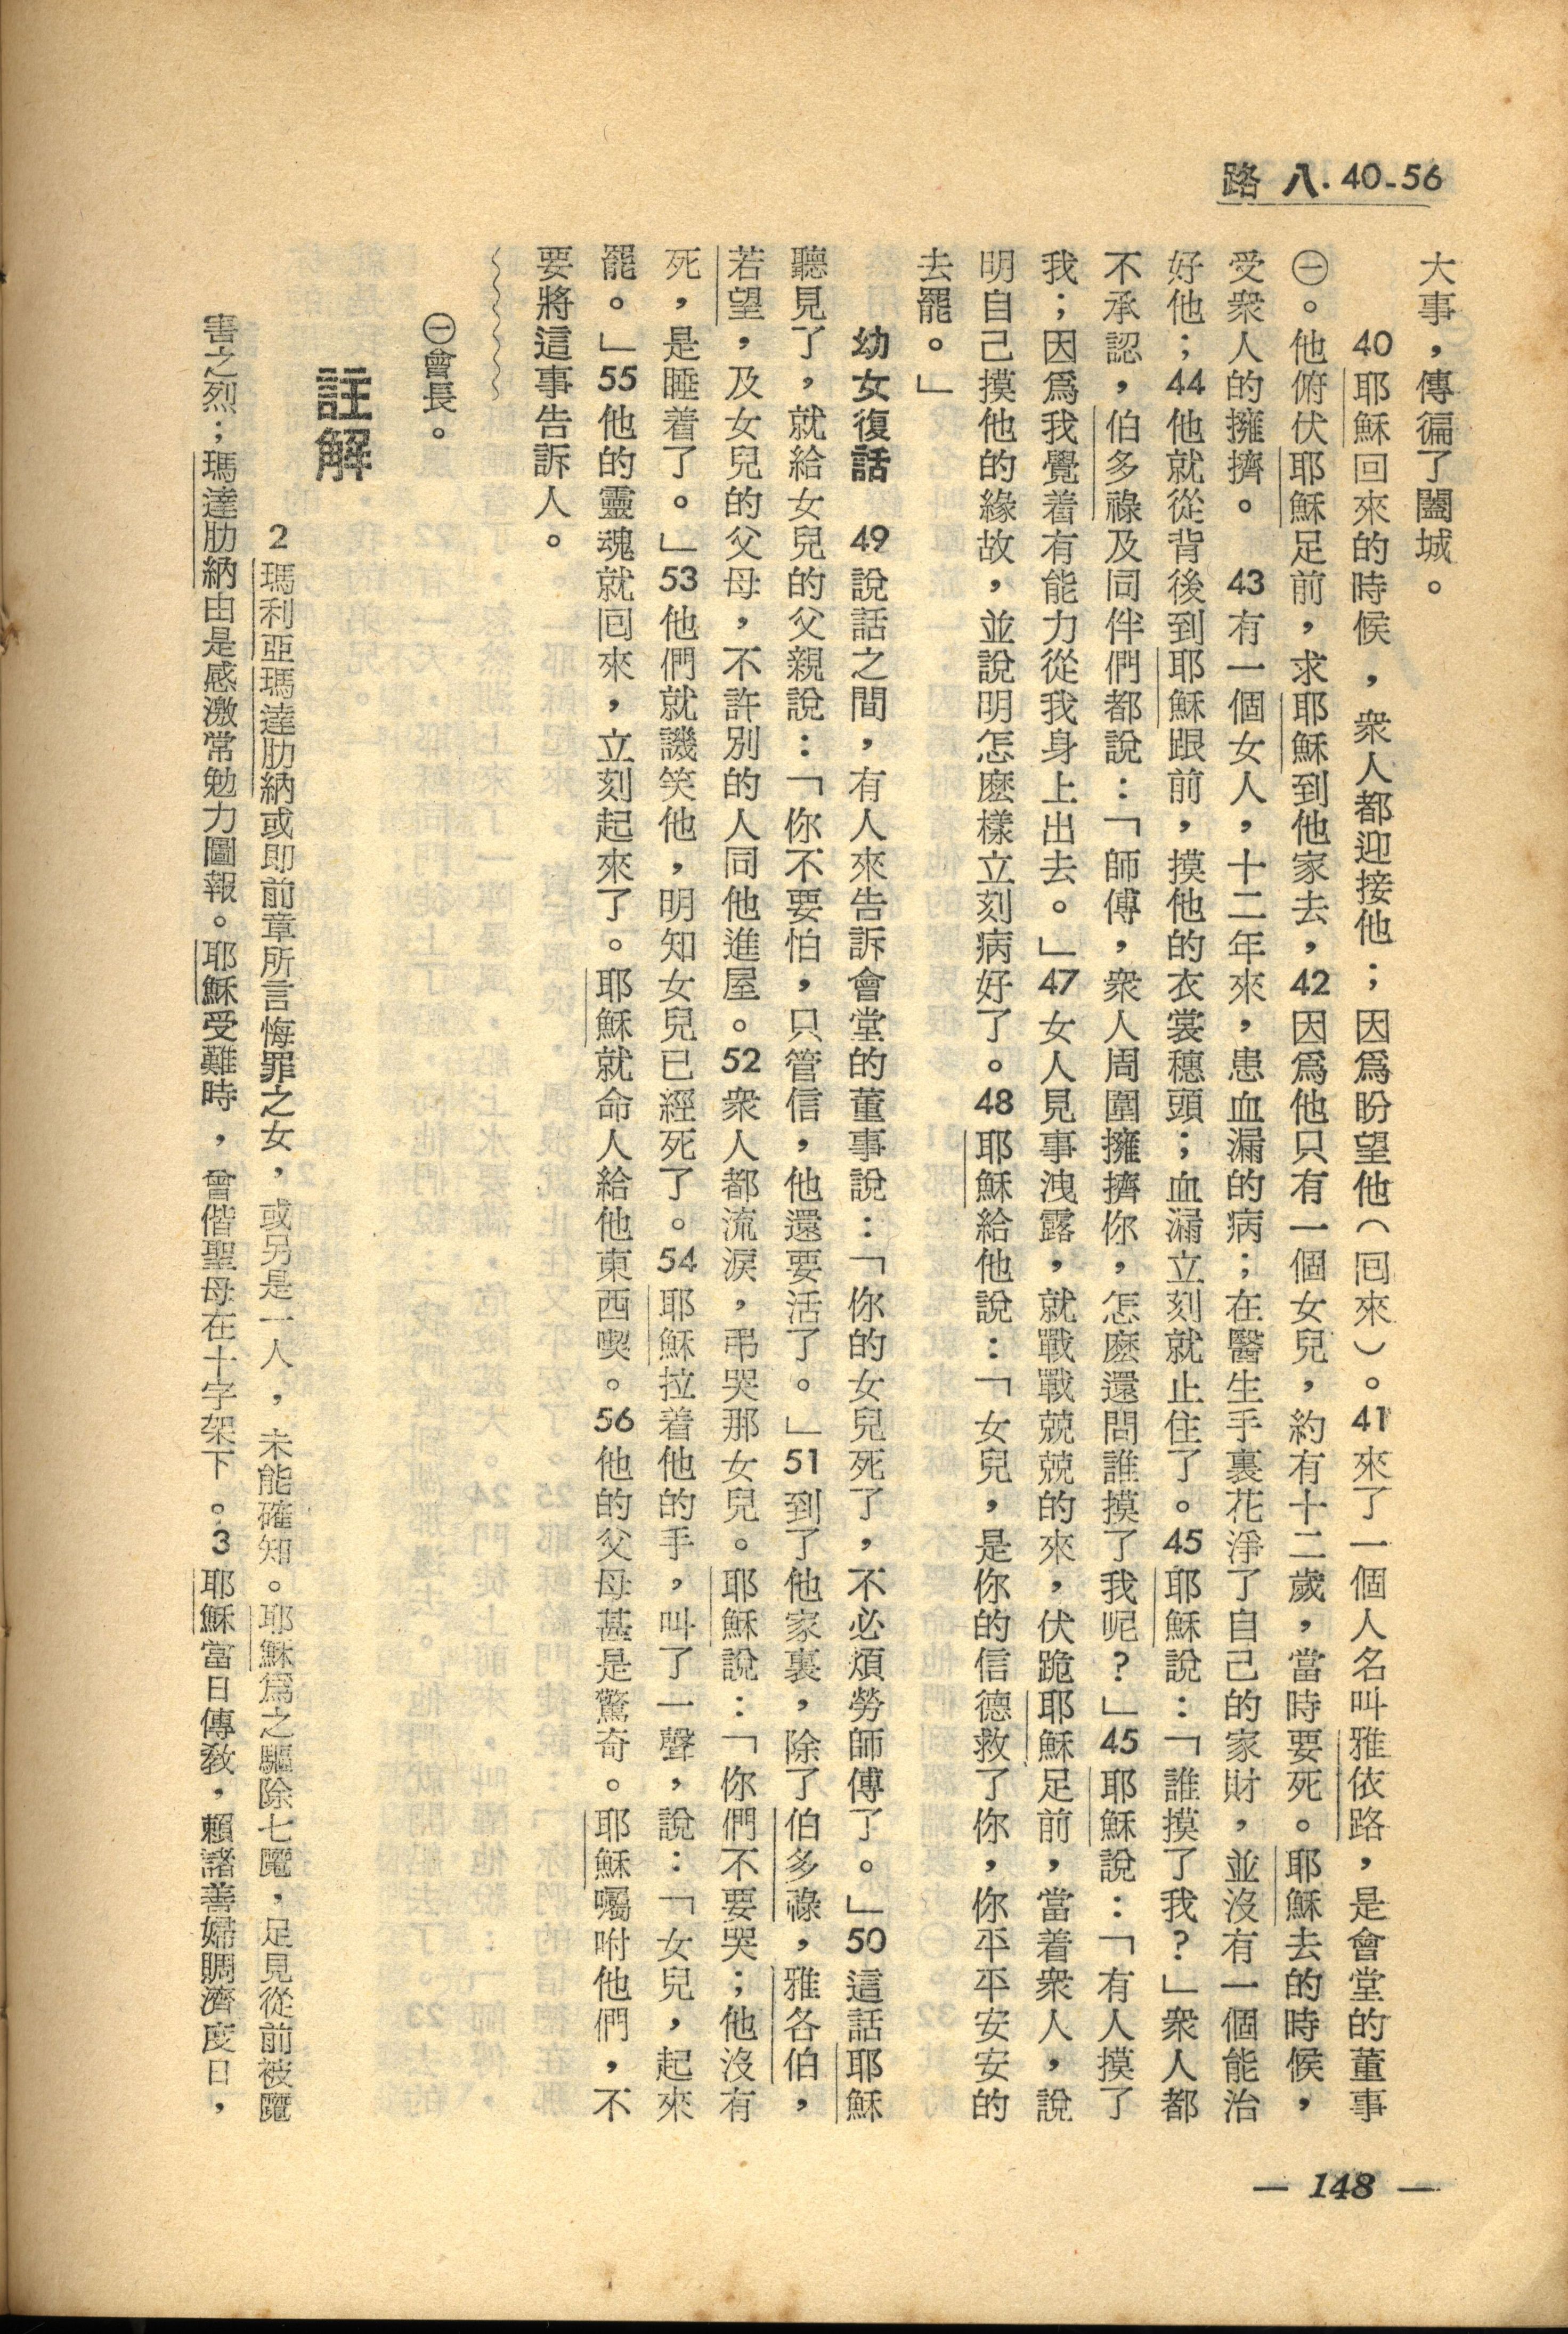 路 八. 40-56
大事，傳徧了闔城。
40 耶穌回來的時候，衆人都迎接他；因爲盼望他（回來）。41 來了一個人名叫雅依路，是會堂的董事
㊀。他俯伏耶穌足前，求耶穌到他家去，42 因爲他只有一個女兒，約有十二歲，當時要死。耶穌去的時候，
受衆人的擁擠。　43 有一個女人，十二年來，患血漏的病；在醫生手裏花淨了自己的家財，並沒有一個能治
好他；44 他就從背後到耶穌跟前，摸他的衣裳穗頭；血漏立刻就止住了。45 耶穌說：「誰摸了我？」衆人都
不承認，伯多祿及同伴們都說：「師傅，衆人周圍擁擠你，怎麽還問誰摸了我呢？」45 耶穌說：「有人摸了
我；因爲我覺着有能力從我身上出去。」47 女人見事洩露，就戰戰兢兢的來，伏跪耶穌足前，當着衆人，說
明自己摸他的緣故，並說明怎麽樣立刻病好了。48 耶穌給他說：「女兒，是你的信德救了你，你平平安安的
去罷。」
幼女復話　49 說話之間，有人來告訴會堂的董事說：「你的女兒死了，不必煩勞師傅了。」50 這話耶穌
聽見了，就給女兒的父親說：「你不要怕，只管信，他還要活了。」51 到了他家裏，除了伯多祿，雅各伯，
若望，及女兒的父母，不許別的人同他進屋。52 衆人都流淚，弔哭那女兒。耶穌說：「你們不要哭；他沒有
死，是睡着了。」53 他們就譏笑他，明知女兒已經死了。54 耶穌拉着他的手，叫了一聲，說：「女兒，起來
罷。」55 他的靈魂就回來，立刻起來了。耶穌就命人給他東西喫。56 他的父母甚是驚奇。耶穌囑咐他們，不
要將這事告訴人。
㊀會長。
註解
2 瑪利亞瑪達肋納或即前章所言悔罪之女，或另是一人，未能確知。耶穌爲之驅除七魔，足見從前被魔
害之烈；瑪達肋納由是感激常勉力圖報。耶穌受難時，曾偕聖母在十字架下。3 耶穌當日傳教，賴諸善婦賙濟度日，
— 148 —